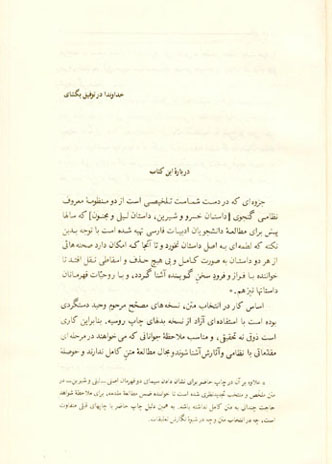 خداوندا در توفیق بگشای
دربارهٔ این کتاب
جزوه‌ای که در دست شماست تلخیصی است از دو منظومهٔ معروف
نظامی گنجوی [داستان خسرو و شیرین، داستان لیلی و مجنون] که سالها
پیش برای مطالعهٔ دانشجویان ادبیات فارسی تهیه شده است با توجه بدین
نکته که لطمه‌ای به اصل داستان نخورد و تا آنجا که امکان دارد صحنه‌هائی
از هر دو داستان به صورت کامل و بی هیچ حذف و اسقاطی نقل افتد تا
خواننده با فراز و فرود سخن گوینده آشنا گردد، و با روحیّات قهرمانان
داستانها نیز هم.*
اساس کار در انتخاب متن، نسخه‌های مصحَّح مرحوم وحید دستگردی
بوده است با استفاده‌ای آزاد از نسخه بدلهای چاپ روسیه. بنابراین کاری
است ذوقی نه تحقیقی، و مناسب ملاحظهٔ جوانانی که می‌خواهند در مرحله‌ای
مقدّماتی با نظامی و آثارش آشنا شوند و مجال مطالعهٔ متن کامل ندارند و حوصلهٔ
* علاوه بر آن در چاپ حاضر برای نشان دادن سیمای دو قهرمان اصلی ـ لیلی و شیرین ـ در
متن ملخص و منتخب تجدیدنظری شده است تا خواننده ضمن مطالعهٔ مقدمه، برای ملاحظهٔ شواهد
حاجت چندانی به متن کامل نداشته باشد. به همین دلیل چاپ حاضر با چاپهای قبلی متفاوت
است، چه در انتخاب متن و چه در شیوهٔ نگارش تعلیقات.